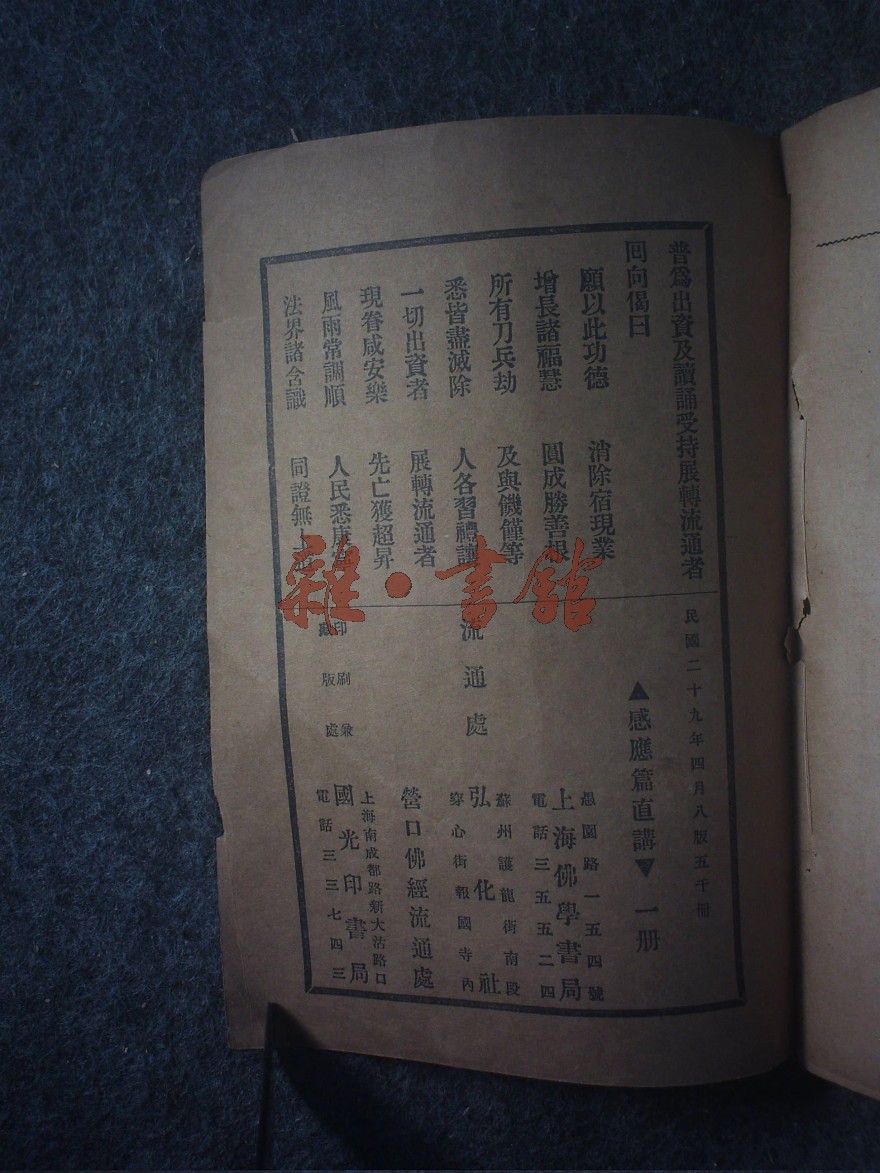 普爲出資及讀誦受持展轉流通者
回向偈曰
願以此功德　消除宿現業
增長諸福慧　圓成勝善根
所有刀兵劫　及與饑饉等
悉皆盡滅除　人各習禮讓
一切出資者　展轉流通者
現眷咸安樂　先亡獲超昇
風雨常調順　人民悉康
法界諸含識　同證無上
民國二十九年四月八版五千冊
▲感應篇直講▼　一册
流通處
愚園路一五四號
上海佛學書局
電話三五五二四
蘇州護龍街南段
弘化社
穿心街報國寺內
營口佛經流通處
印刷兼
版處
上海南成都路新大沽路口
國光印書局
電話三三七四三
雜·書館